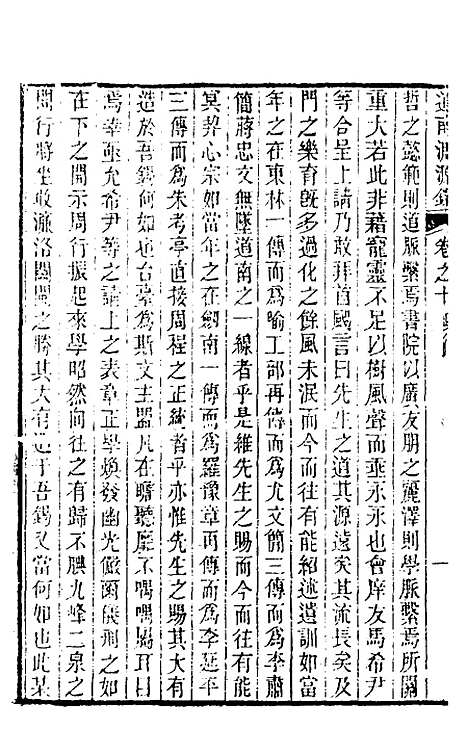 道南淵源錄 卷之十
哲之懿範則道脈繫焉書院以廣友朋之麗澤則學脈繫焉所關
重大若此非藉寵靈不足以樹風聲而垂永永也會庠友馬希尹
等合呈上請乃敢拜首颺言曰先生之道其源遠矣其流長矣及
門之樂育旣多過化之餘風未泯而今而往有能紹述遺訓如當
年之在東林一傳而為喻工部再傳而為尤文簡三傳而為李肅
簡蔣忠文無墜道南之一線者乎是維先生之賜而今而往有能
冥契心宗如當年之在劒南一傳而為羅豫章再傳而為李延平
三傳而為朱考亭直接周程之正統者乎亦惟先生之賜其大有
造於吾錫何如也台臺為斯文主盟凡在瞻聽靡不喁喁屬耳目
焉幸亟允希尹等之請上之表章正學煥發幽光儼爾儀刑之如
在下之開示周行振起來學昭然向往之有歸不腆九峰二泉之
間行將坐收濂洛關閩之勝其大有造于吾錫又當何如也此某